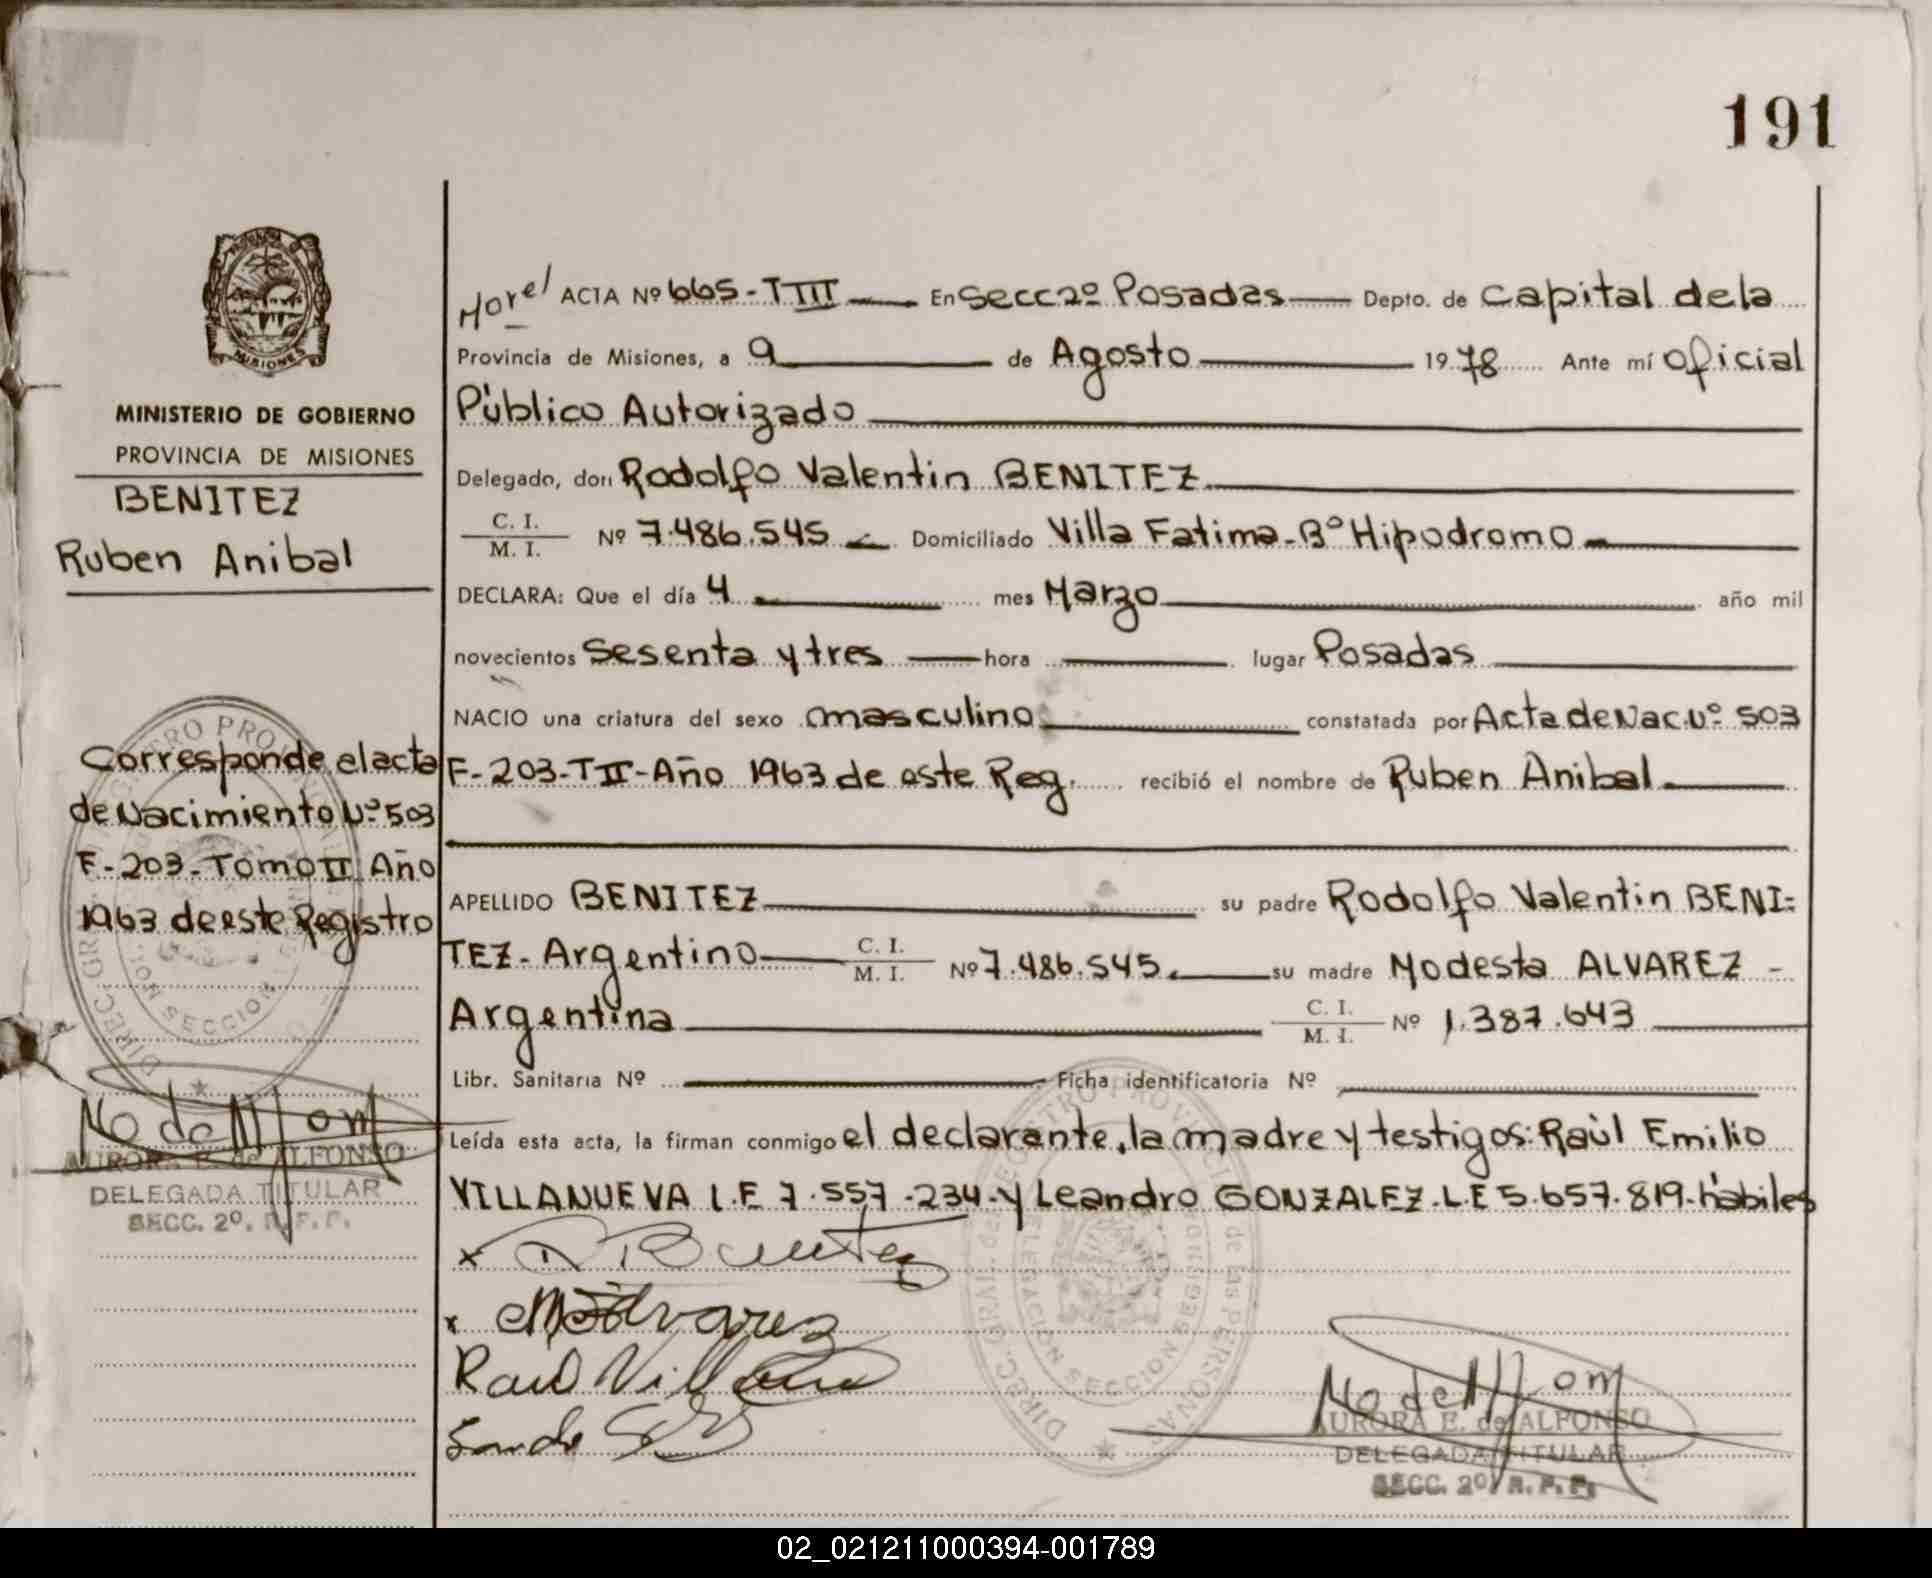 191
MISIONES
MINISTERIO DE GOBIERNO
PROVINCIA DE MISIONES
BENITEZ
Ruben Anibal
Corresponde el acta
de Nacimiento Nº 503
F-203-Tomo II Año
1963 de este Registro
AURORA E. de ALFONSO
DELEGADA TITULAR
SECC. 2º. R.P.P.
ACTA Nº 665-TIII En Secc 2º Posadas Depto. de Capital de la
Provincia de Misiones, a 9 de Agosto 1978 Ante mí Oficial
Público Autorizado
Delegado, don Rodolfo Valentin BENITEZ
C. I.
M. I. Nº 7.486.545 Domiciliado Villa Fatima-Bº Hipodromo
DECLARA: Que el día 4 mes Marzo año mil
novecientos Sesenta y tres hora lugar Posadas
NACIO una criatura del sexo masculino constatada por Acta de Nac. Nº 503
F-203-TII-Año 1963 de este Reg. recibió el nombre de Ruben Anibal
APELLIDO BENITEZ su padre Rodolfo Valentin BENI=
TEZ-Argentino C. I.
M. I. Nº 7.486.545. su madre Modesta ALVAREZ -
Argentina C. I.
M. I. Nº 1.387.643
Libr. Sanitaria Nº Ficha identificatoria Nº
Leída esta acta, la firman conmigo el declarante, la madre y testigos: Raúl Emilio
VILLANUEVA L.E 7.557.234-y Leandro GONZALEZ-L.E 5.657.819-hábiles
x R Benitez
x M Alvarez
Raul
AURORA E. de ALFONSO
DELEGADA TITULAR
SECC. 2º R.P.P.
02_021211000394-001789